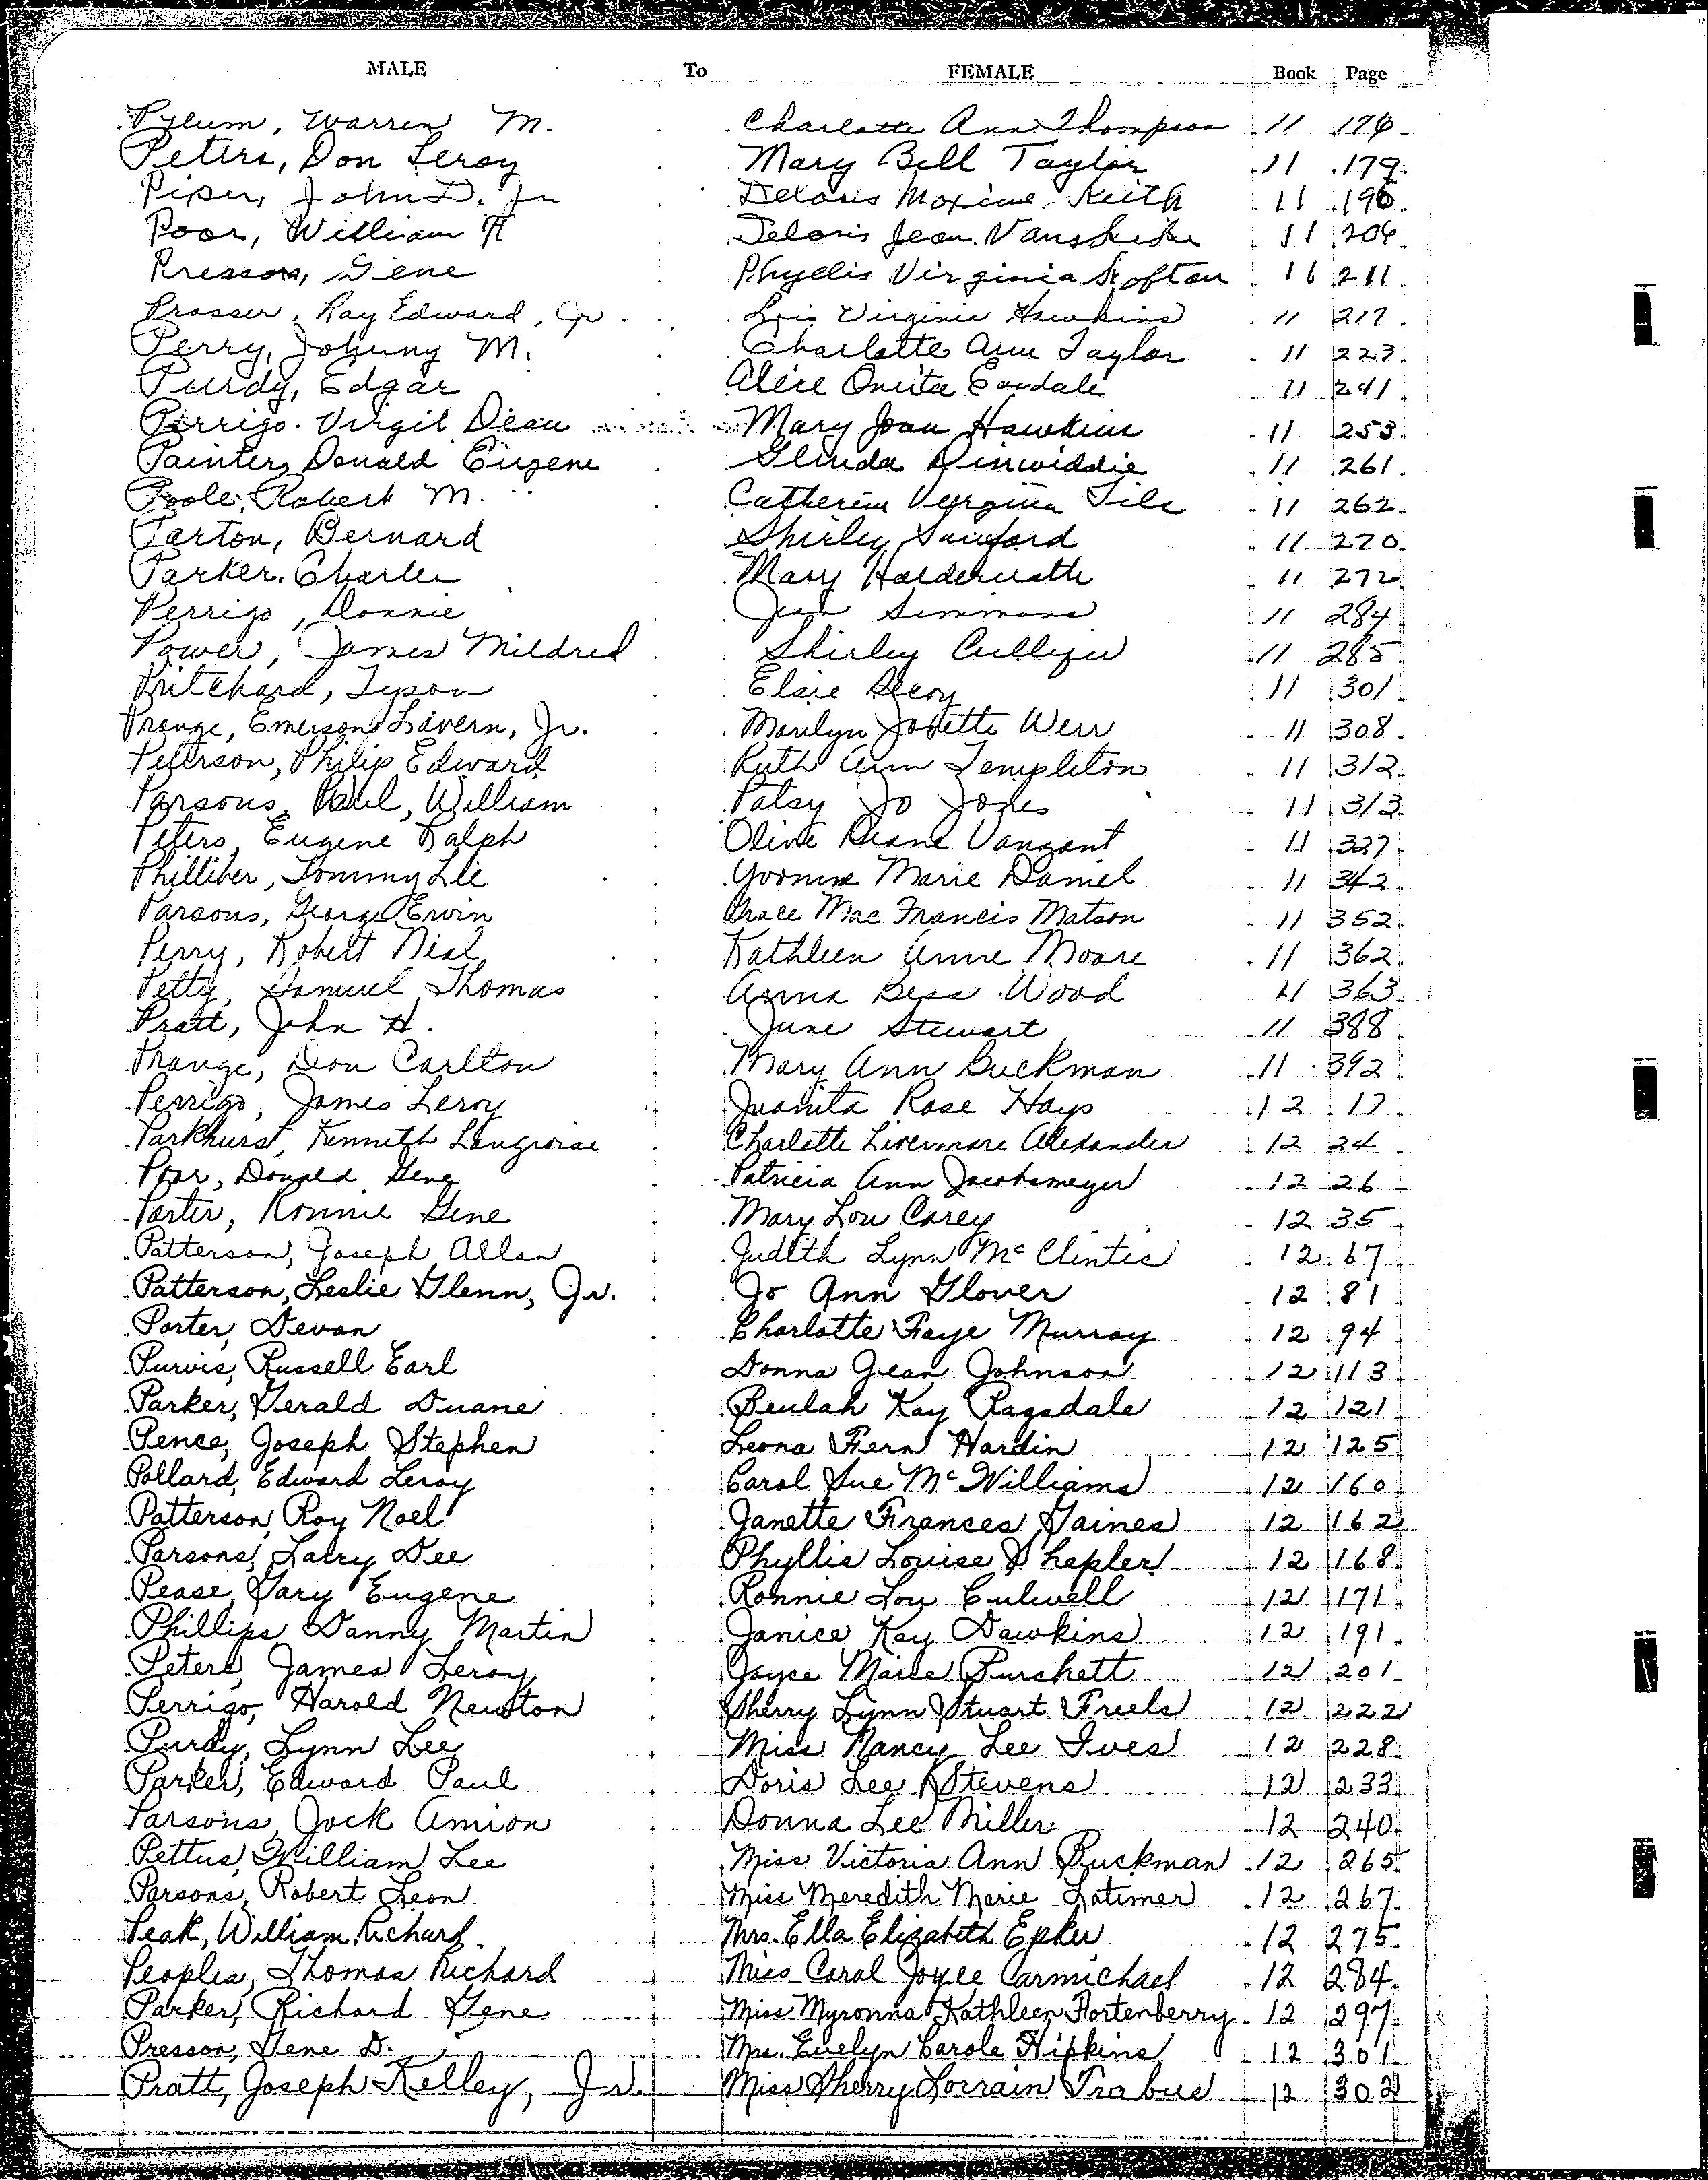 MALE To FEMALE Book Page
Pylum, Warren M. Charlotte Ann Thompson 11 176
Peters, Don Leroy Mary Bell Taylor 11 179
Piper, John D. Jr Deloris Maxine Keith 11 196
Poor, William H Deloris Jean 11 206
Presson, Gene Phyllis Virginia 11 211
Prosser, Ray Edward, Jr. Lois Virginia Hawkins 11 217
Perry, Johnny M. Charlotte Ann Taylor 11 223
Purdy, Edgar Alice 11 241
Perrigo. Virgil Dean Mary Joan Hawkins 11 253
Painter, Donald Eugene Glenda Dinwiddie 11 261
Poole, Robert M. Catherine Vergina 11 262
Parton, Bernard Shirley Sanford 11 270
Parker. Charles Mary 11 272
Perrigo, Donnie Jean Simmons 11 284
Power, James Mildred Shirley 11 285
Pritchard, Tyson Elsie 11 301
Prange, Emerson Lavern, Jr. Marilyn Josette Werr 11 308
Peterson, Philip Edward Ruth Ann Templeton 11 312
Parsons, Paul, William Patsy Jo Jones 11 313
Peters, Eugene Ralph Olive Diane Vanzant 11 327
Philliber, Tommy Lee Yvonne Marie Daniel 11 342
Parsons, George Erwin Grace Mae Francis Matson 11 352
Perry, Robert Neal Kathleen Anne Moore 11 362
Petty, Samuel Thomas Anna Bess Wood 11 363
Pratt, John H. June Stewart 11 388
Prange, Don Carlton Mary Ann Buckman 11 392
Perrigo, James Leroy Juanita Rose Hays 12 17
Parkhurst, Kenneth Langroise Charlotte Livermore Alexander 12 24
Poor, Donald Gene Patricia Ann Jacobsmeyer 12 26
Porter, Ronnie Gene Mary Lou Carey 12 35
Patterson, Joseph Allan Judith Lynn McClintic 12 67
Patterson, Leslie Glenn, Jr. Jo Ann Glover 12 81
Porter, Devon Charlotte Faye Murray 12 94
Purvis, Russell Earl Donna Jean Johnson 12 113
Parker, Gerald Duane Beulah Kay Ragsdale 12 121
Pence, Joseph Stephen Leona Fern Hardin 12 125
Pollard, Edward Leroy Carol Sue McWilliams 12 160
Patterson, Roy Noel Janette Frances Gaines 12 162
Parsons, Larry Dee Phyllis Louise Shepler 12 168
Pease, Gary Eugene Ronnie Lou Culwell 12 171
Phillips Danny Martin Janice Kay Dawkins 12 191
Peters, James Leroy Joyce Marie Purshett 12 201
Perrigo, Harold Newton Sherry Lynn Stuart Freels 12 222
Purdy, Lynn Lee Miss Nancy Lee Ives 12 228
Parker, Edward Paul Doris Lee Stevens 12 233
Parsons, Jack Amion Donna Lee Miller 12 240
Pettus, William Lee Miss Victoria Ann Buckman 12 265
Parsons, Robert Leon Miss Meredith Marie Latimer 12 267
Peak, William Richard. Mrs. Ella Elizabeth Epker 12 275
Peoples, Thomas Richard Miss Carol Joyce Carmichael 12 284
Parker, Richard Gene Miss Myronna Kathleen Fortenberry 12 297
Presson, Gene D. Mrs. Evelyn Carole Hipkins 12 301
Pratt, Joseph Kelley, Jr. Miss Sherry Lorrain Trabue 12 302